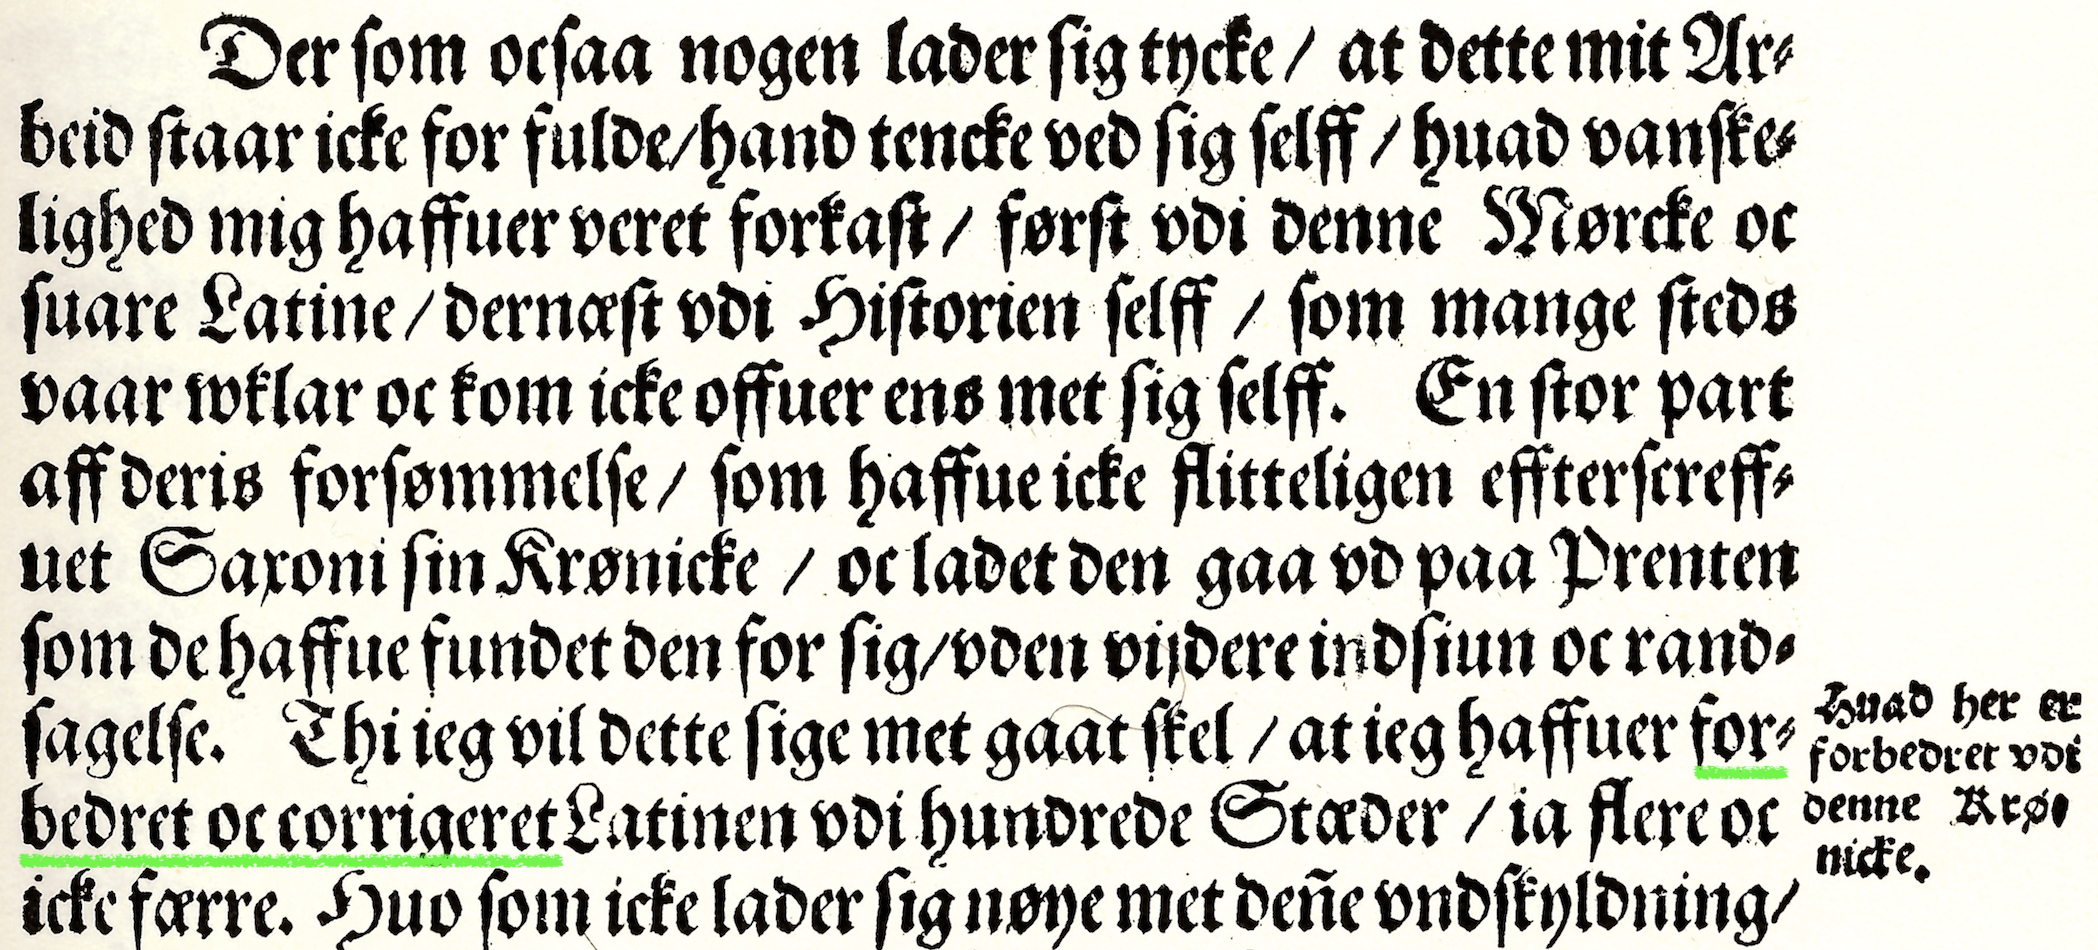 Der som ocsaa nogen lader sig tycke / at dette mit Ar-
beid staar icke for fulde / hand tencke ved sig selff / huad vanske-
lighed mig haffuer veret forkast / først vdi denne Mørcke oc
suare Latine / dernæst vdi Historien selff / som mange steds
vaar wklar oc kom icke offuer ens met sig selff. En stor part
aff deris forsømmelse / som haffue icke flitteligen effterscreff-
uet Saxoni sin Krønicke / oc ladet den gaa vd paa Prenten
som de haffue fundet den for sig / vden vijdere indsiun oc rand-
sagelse. Thi ieg vil dette sige met gaat skel / at ieg haffuer for-
bedret oc corrigeret Latinen vdi hundrede Stæder / ia flere oc
icke færre. Huo som icke lader sig nøye met deñe vndskyldning /
Huad her er
forbedret vdi
denne Krø-
nicke.